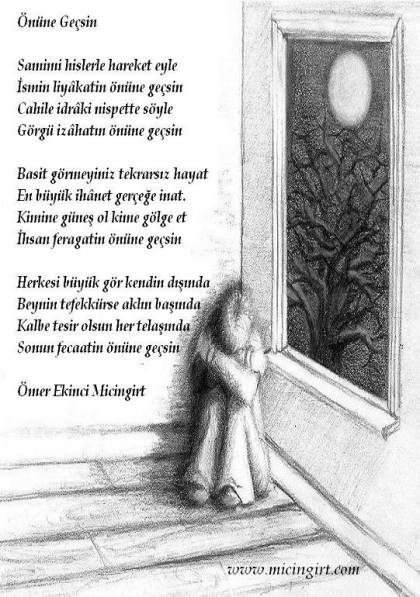 Önüne Geçsin
Samimi hislerle hareket eyle
İsmin liyâkatin önüne geçsin
Cahile idrâki nispette söyle
Görgü izâhatın önüne geçsin
Basit görmeyiniz tekrarsız hayat
En büyük ihânet gerçeğe inat.
Kimine güneş ol kime gölge et
İhsan feragatin önüne geçsin
Herkesi büyük gör kendin dışında
Beynin tefekkürse aklın başında
Kalbe tesir olsun her telaşında
Sonun fecaatin önüne geçsin
Ömer Ekinci Micingirt
www.micingirt.com